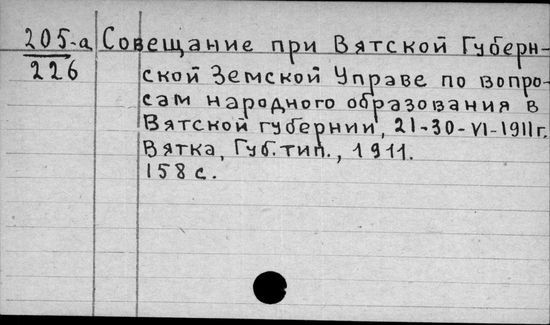 205-а Совещание при Вятской Губерн-
226 ской Земской Управе по вопро-
сам народного образования в
Вятской губернии, 21-30-VI-1911 г.
Вятка, Губ. тип., 1911.
158 с.